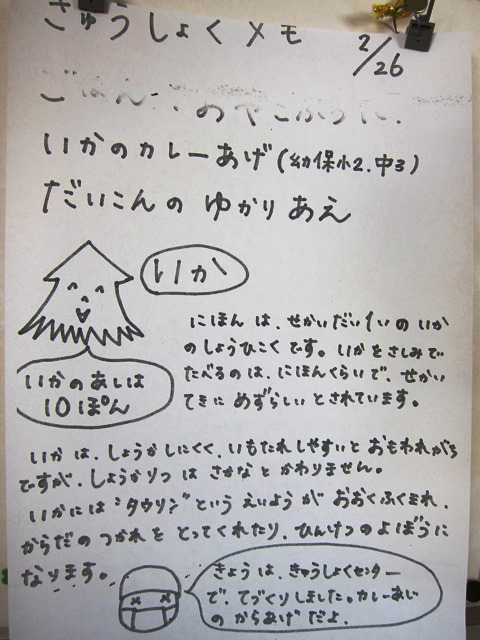 きゅうしょくメモ 2/26
ごはん、おやこ
いかのカレーあげ(幼保小2.中3)
だいこんのゆかりあえ
いか
いかのあしは
10ぽん
にほんは、せかいだい1いのいか
のしょうひこくです。いかをさしみで
たべるのは、にほんくらいで、せかい
てきにめずらしいとされています。
いかは、しょうかしにくく、いもたれしやすいとおもわれがち
ですが、しょうかりつはさかなとかわりません。
いかには"タウリン"というえいようがおおくふくまれ、
からだのつかれをとってくれたり、ひんけつのよぼうに
なります。
きょうは、きゅうしょくセンター
で、てづくりしました。カレーあじ
のからあげだよ。